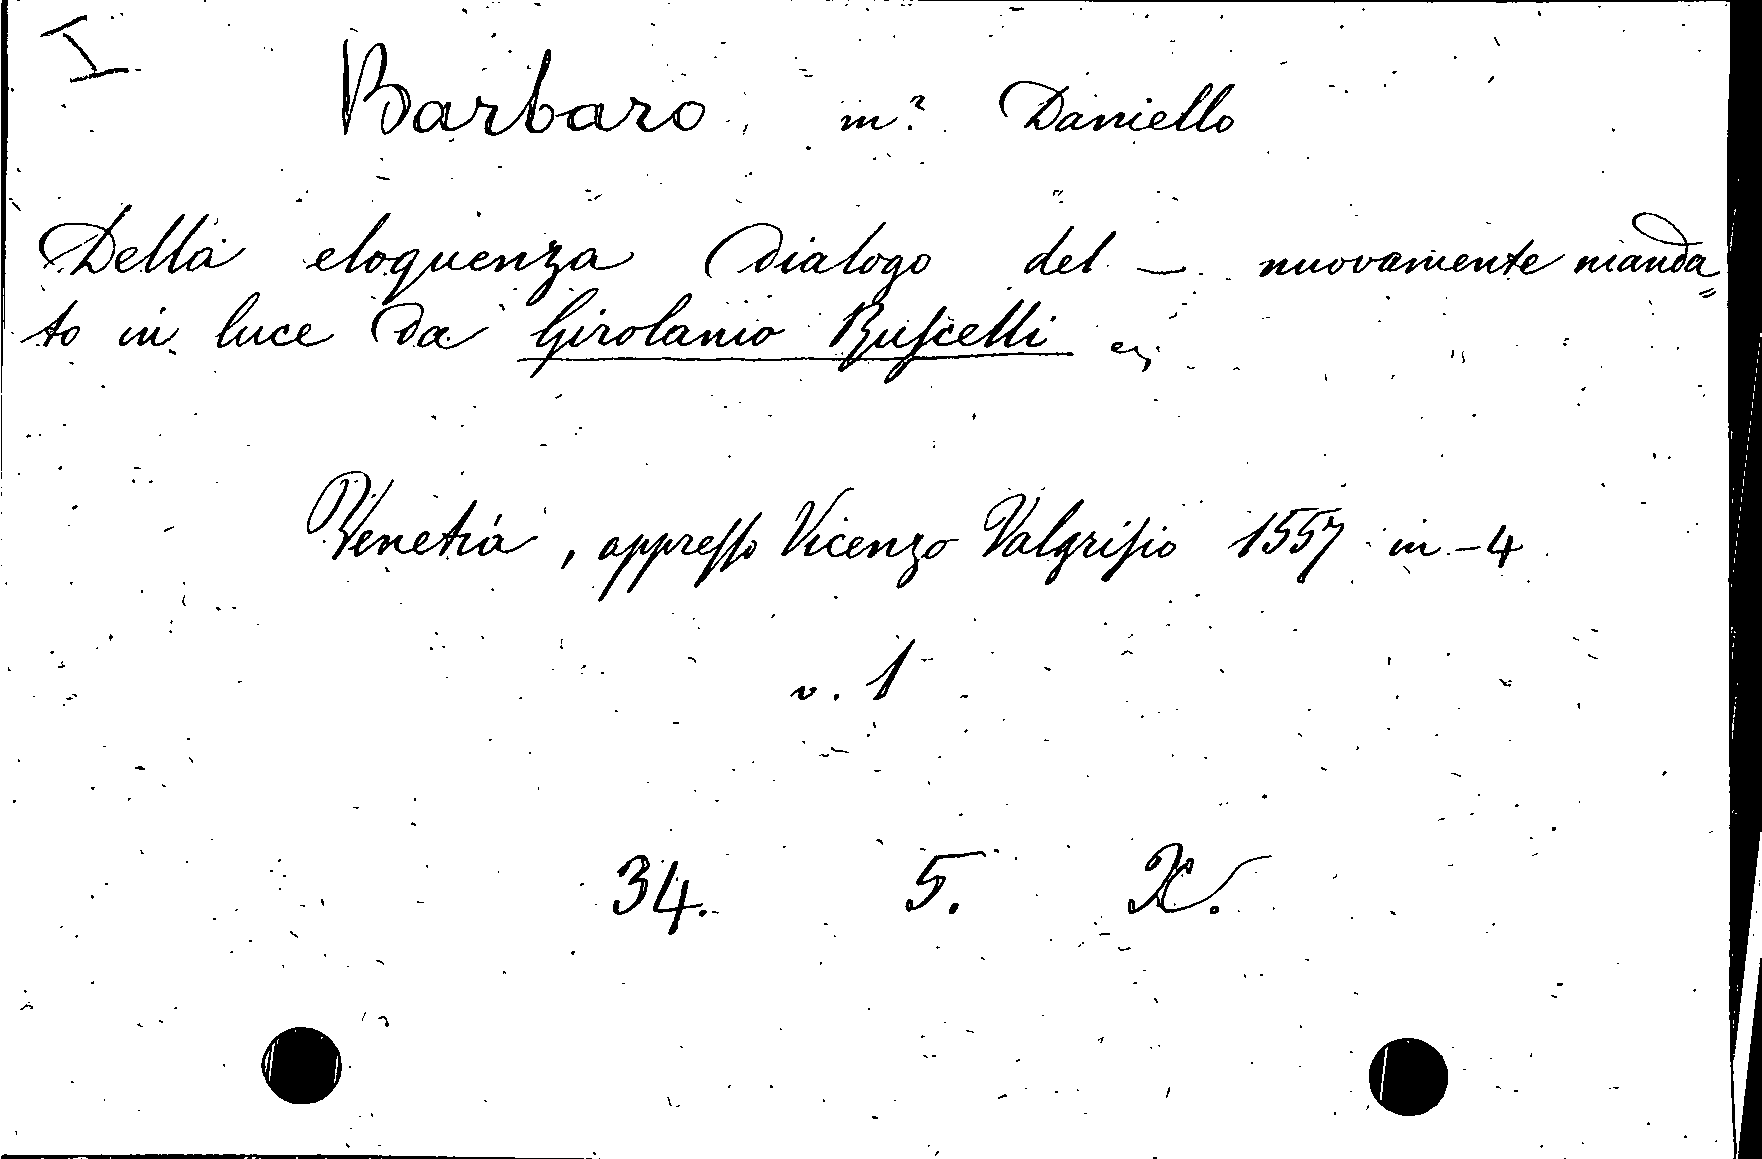 I
Barbaro, m.r Daniello
Della eloquenza Dialogo del — nuovamente manda=
to in luce da Girolamo Ruscelli
Venetia, appresso Vicenzo Valgrisio 1557 in-4
v. 1
34. 5. X.